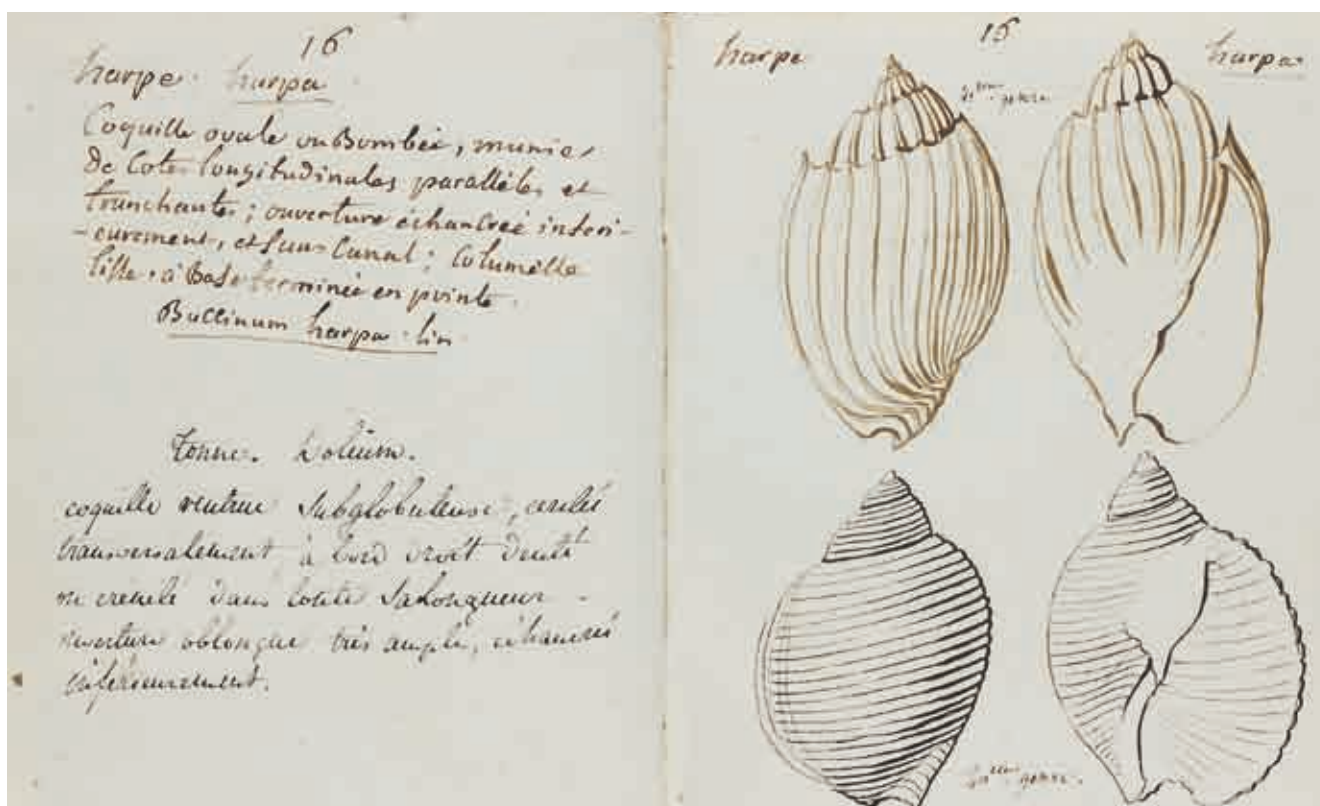 16
harpe. harpa
Coquille ovale ou Bombée, munie
de Cotes longitudinales parallèles et
tranchantes; ouverture échancrée inferi-
-eurement, et sans Canal; Columelle
lisse à Base terminée en pointe.
Buccinum harpa. lin
Tonne. Dolium.
coquille ventrue subglobuleuse, cerclée
transversalement à bord droit denté
ou crénelé dans toute sa longueur.
ouverture oblongue très ample, échancrée
inférieurement.
16
harpe
harpa
genre
genre.